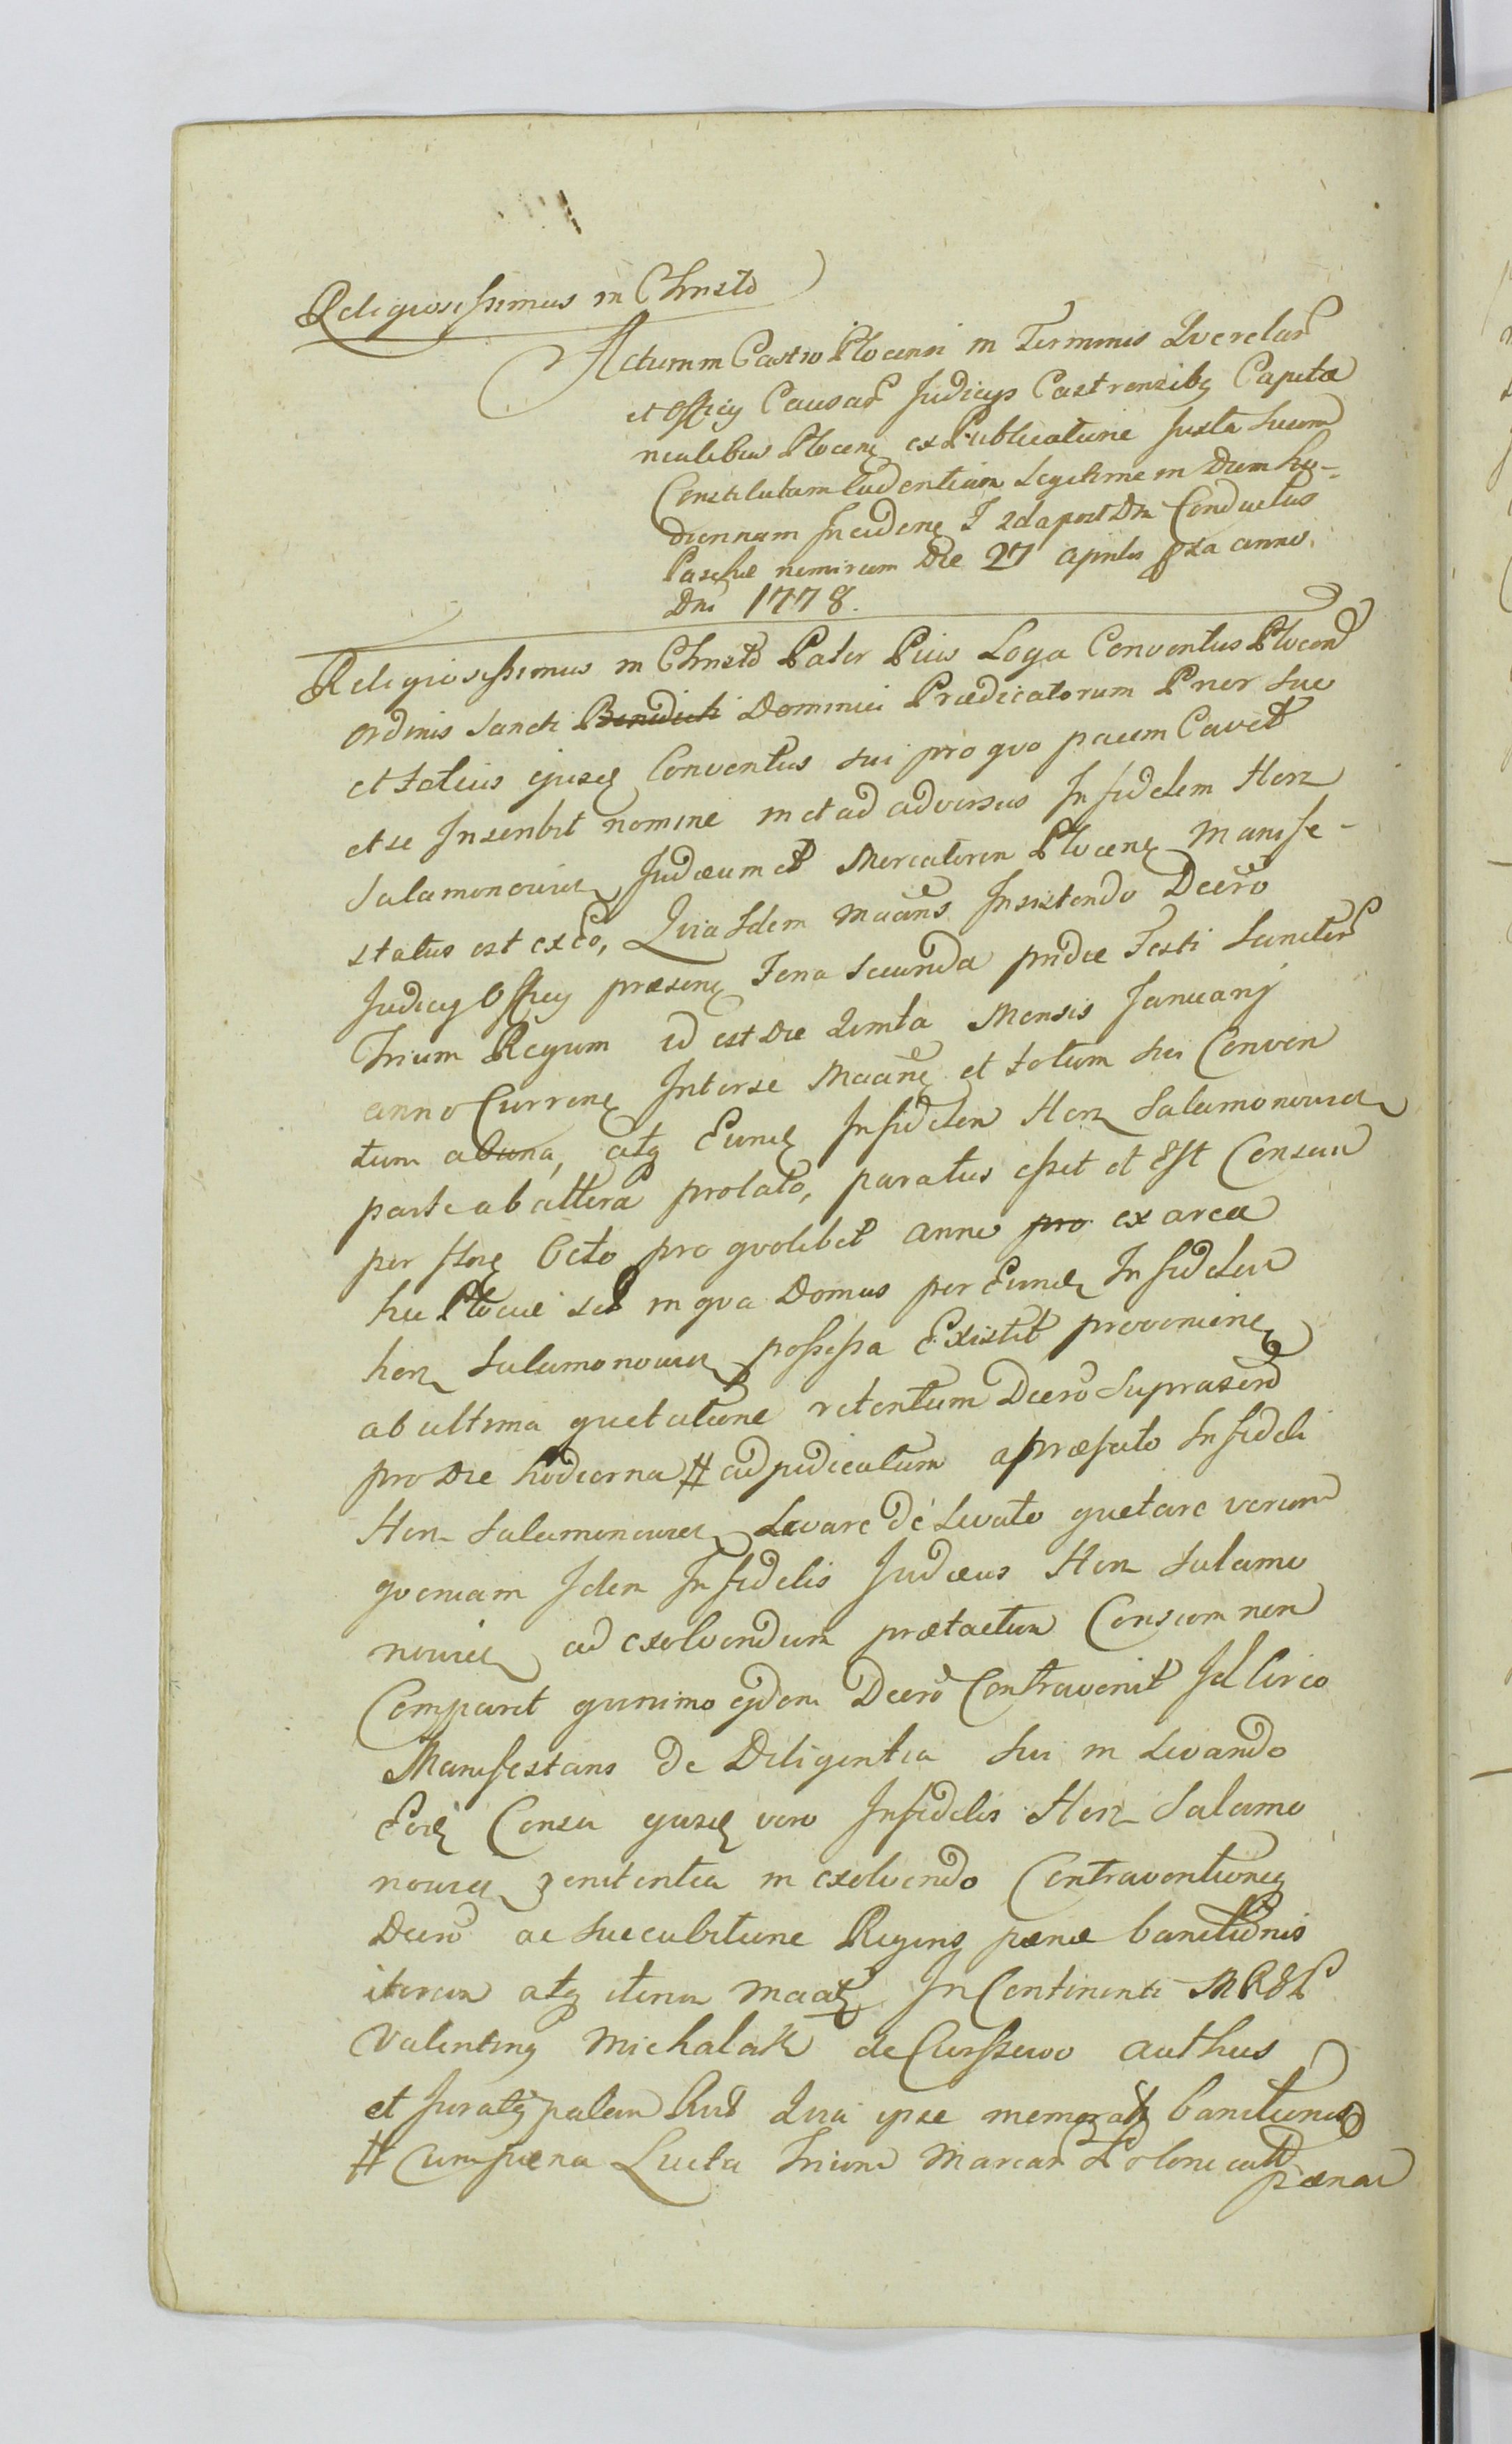 Religiosissimus in Christo
Actum in Castro Plocensi in Terminis Querelar
et Officy Causar Judicys Castrensibq Capita
nealibus Plocenq ex Publicatione Juxta suum
Constitutam Cadentiam Legitime in Diem ho-
diernam Incidenq F 2da post Dm Conductus
Paschae nimirum Die 27 Aprilis anno
Dni 1778.
Religiosissimus in Christo Pater Pius Loga Conventus Plocen
Ordinis Sancti Benedicti Dominici Praedicatorum Prior suo
et totius ejusq Conventus sui pro quo pacem Cavet
et se Inscribit nomine in et ad adversus Infidelem Herz
Salamonowicz Judaeum et Mercatorem Plocenq Manife-
status est ex Eo, Quia Idem Maans Insistendo Decro
Judicy Officy praesenq Feria Secunda pridie Festi Sanctor
Trium Regum id est Die Quinta Mensis Januarij
anno Currenq Inter se Maanq et totum sui Conven
tum ab una, atq Eumq Infidelem Herz Salamonowicz
parte ab altera prolato, paratus esset et Est Censum
per flnq Octo pro quolibet anno pro ex area
hic Plociae sit in qua Domus per Eumq Infidelem
herz Salamonowicz possessa Existit provenienq
ab ultima quietatione retentum Decro Suprascro
pro Die hodierna # adjudicatum a praefato Infideli
Herz Salamonowicz Levare de Levato quietare verum
quoniam Idem Infidelis Judaeus Herz Salamo
nowicz ad exolvendum praetactum Censum non
Comparet quinimo ejdem Decro Contravenit Id Circo
Manifestans de Diligentia sui in Levando
Eorq Censu ejusq vero Infidelis Herz Salamo
nowicz renitentia in exolvendo Contraventionq
Decro ac Succubitione Regenq paenae banitionis
iterum atq iterum Maatq In Continenti MRGL
Valentinq Michalak de authus
et Juratq palam Quia ipse banitionis
# Cum paena Lucta Trium Marcar Polonicali
paenae